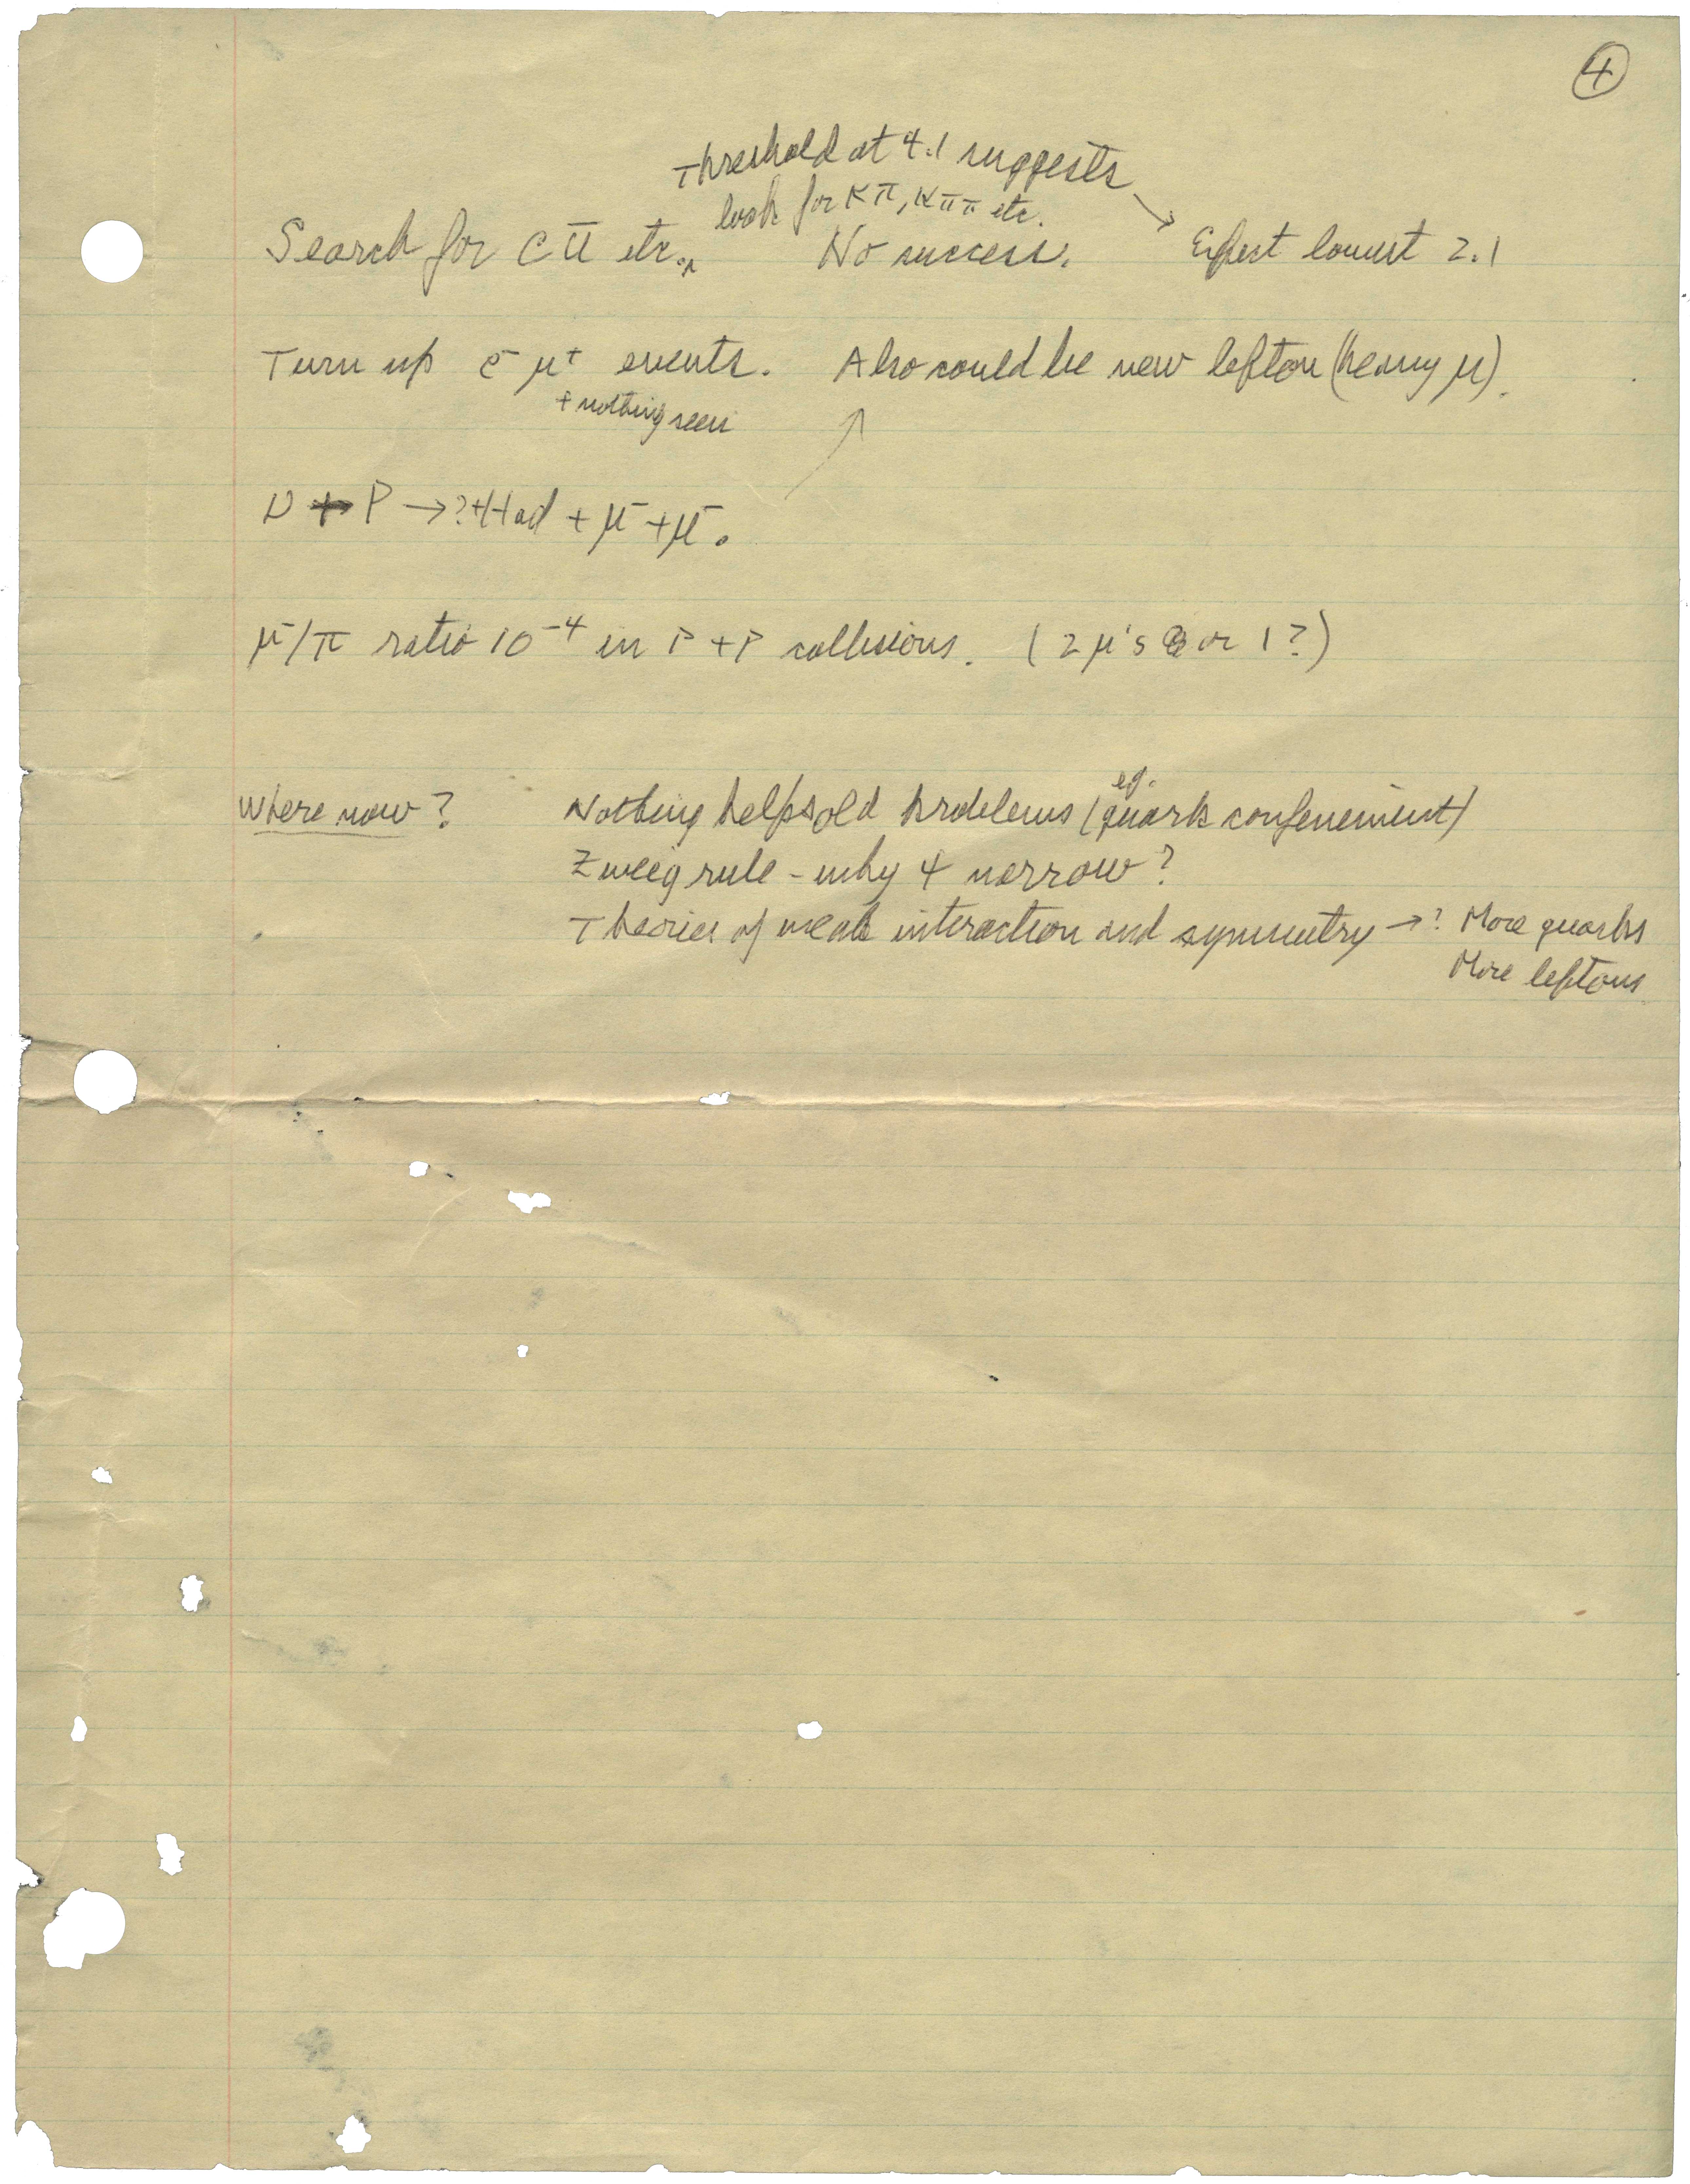 4
Threshold at 4.1 suggests →
look for Kπ, Kππ etc.
Search for c ū etc. No success. Expect lowest 2.1
Turn up e⁻ μ⁺ events. Also could be new lepton (heavy μ).
+ nothing seen
ν + P → ? + Had + μ⁻ + μ⁻.
μ⁻/π ratio 10⁻⁴ in P + P collisions. (2 μ's or 1?)
Where now? Nothing helps old problems (eg. quark confinement)
Zweig rule - why ψ narrow?
Theories of weak interaction and symmetry →? More quarks
More leptons